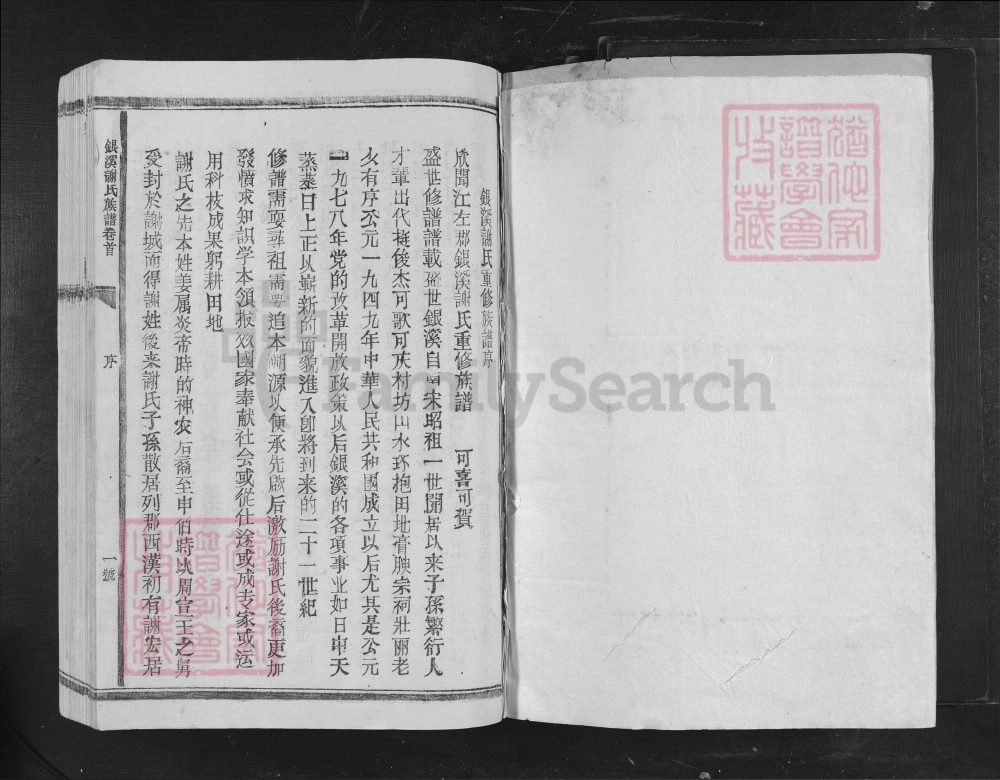 銀溪謝氏重修族譜序
欣聞江左郡銀溪謝氏重修族譜 可喜可賀
盛世修譜譜載盛世銀溪自南宋昭祖一世開居以来子孫繁衍人
才輩出代挺俊杰可歌可庆村坊山水环抱田地膏腴宗祠壯丽老
少有序公元一九四九年中華人民共和國成立以后尤其是公元
一九七八年党的改革開放政策以后銀溪的各項事业如日中天
蒸蒸日上正以嶄新的面貌進入卽將到来的二十一世紀
修譜需要尋祖需要追本溯源以便承先啟后激励謝氏後裔更加
發憤求知識学本領报效國家奉献社会或從仕途或成专家或运
用科枝成果躬耕田地
謝氏之先本姓姜属炎帝時的神农后裔至申伯時以周宣王之舅
受封於謝城而得謝姓後来謝氏子孫散居列郡西漢初有謝宏居
銀溪謝氏族譜卷首
序
一號
FamilySearch